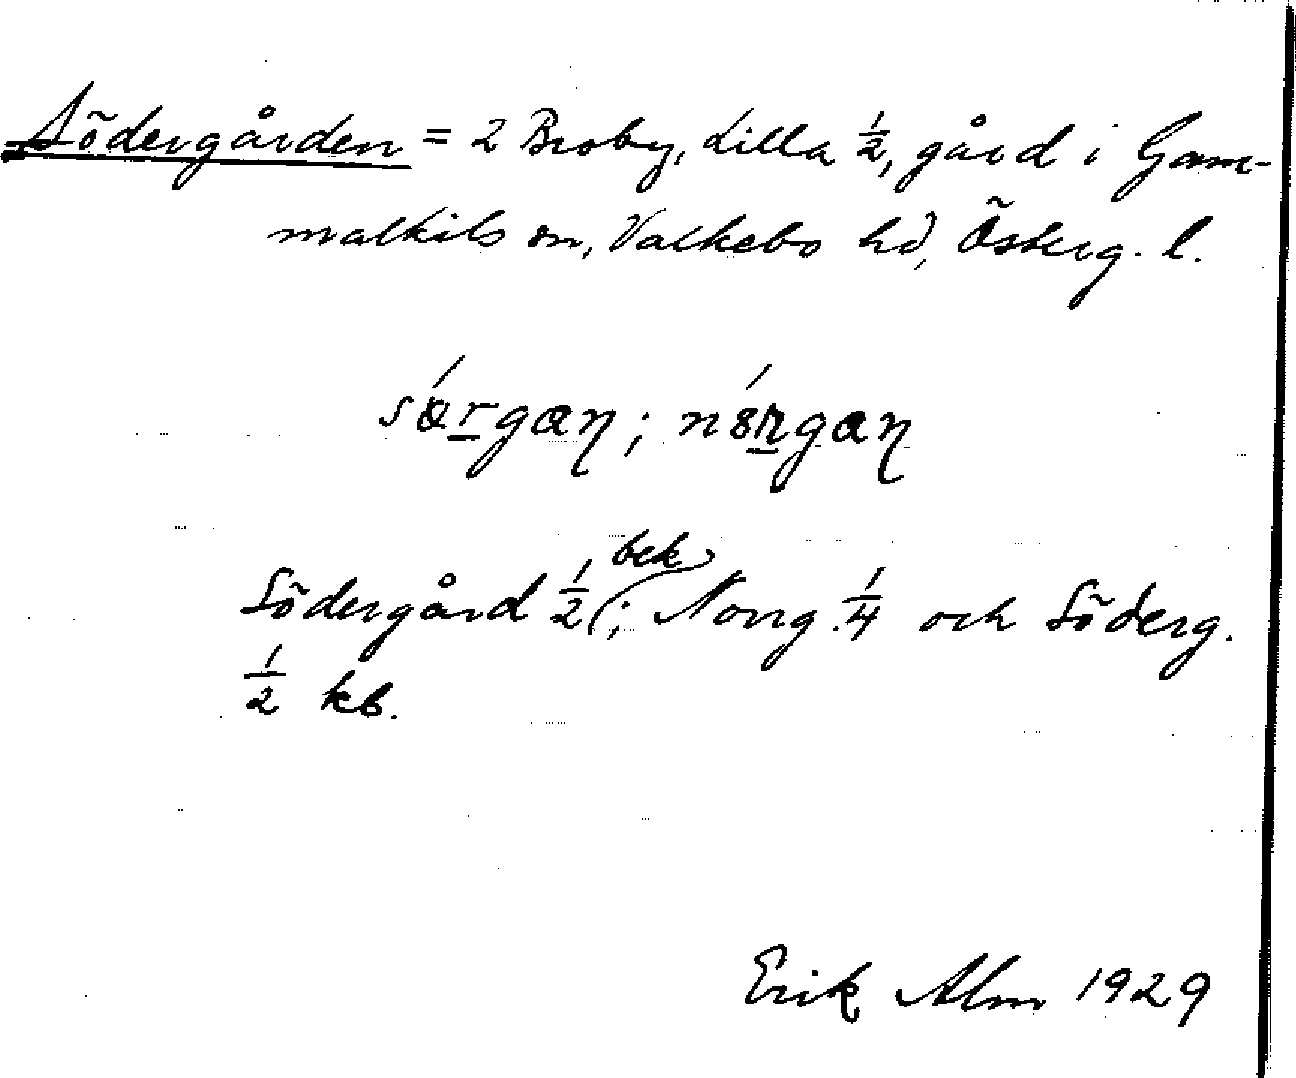 Södergården = 2 Broby, Lilla 1/2, gård i Gam-
malkils sn, Valkebo hd, Österg. l.
sǿrgaŋ; nørgaŋ
bek
Södergård 1/2 (; Norrg. 1/4 och Söderg.
1/2 kb.
Erik Alm 1929